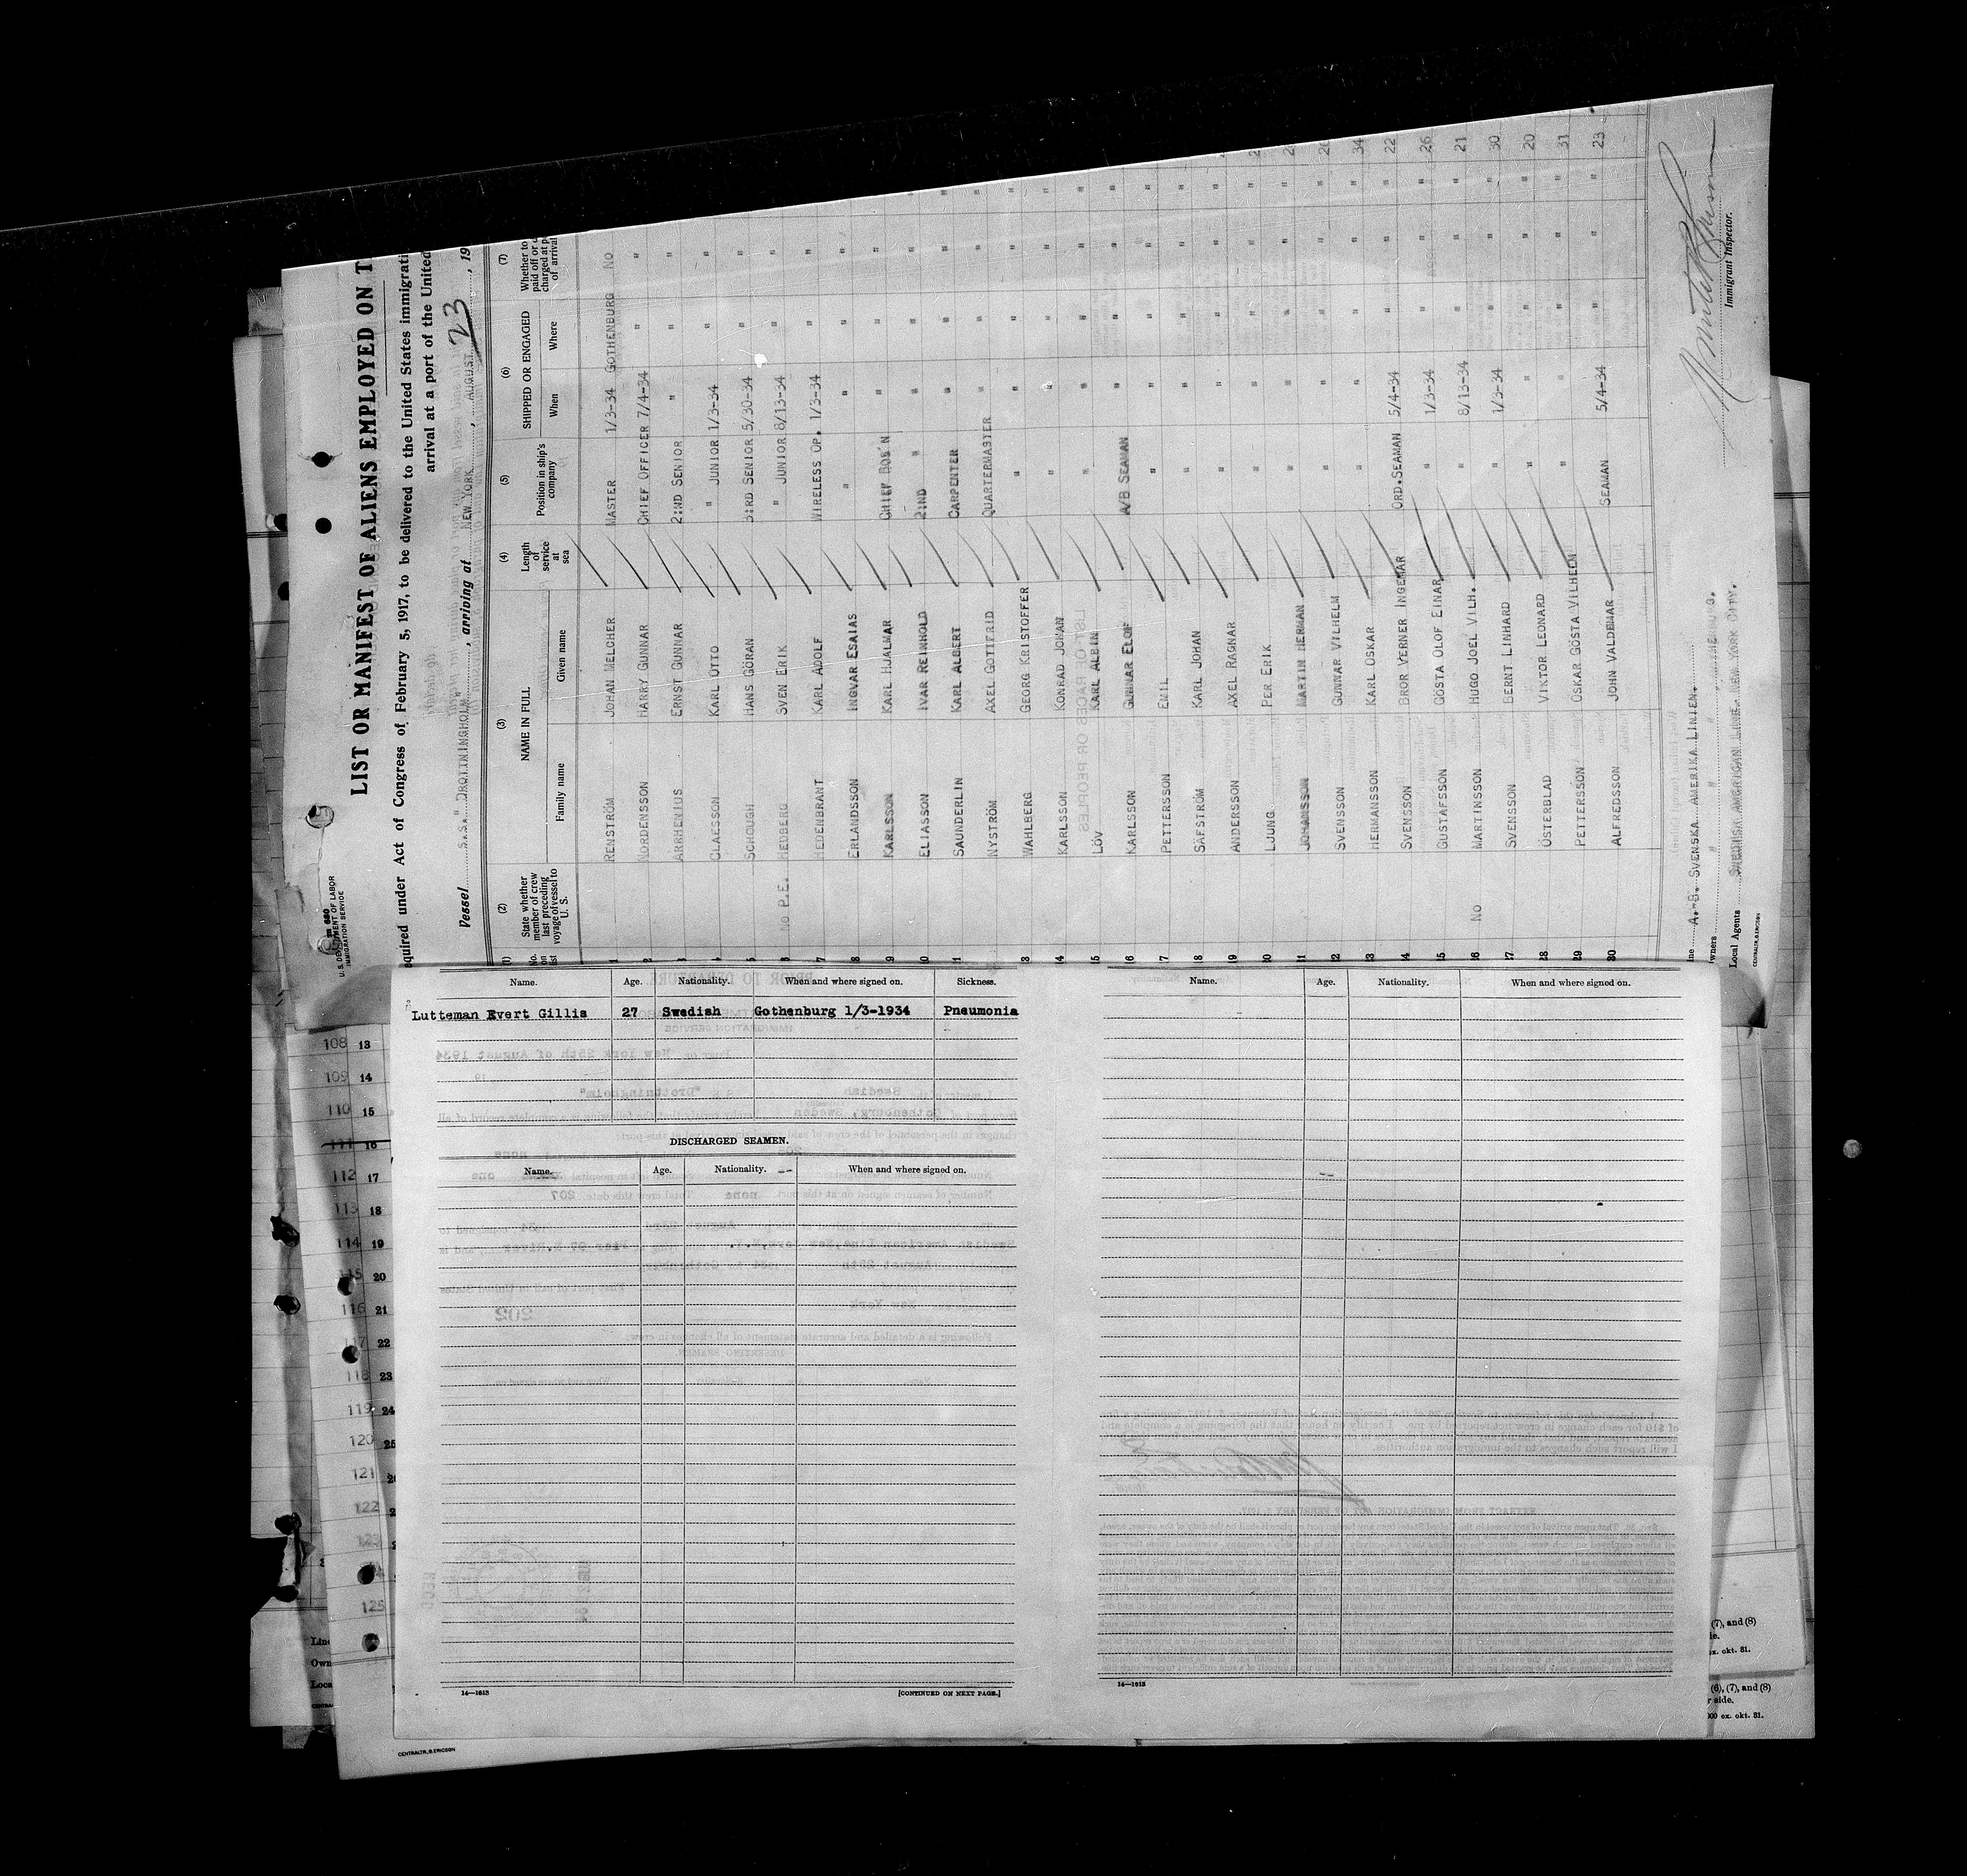 LIST OR MANIFEST OF ALIENS EMPLOYED ON T
U. S. DEPARTMENT OF LABOR
IMMIGRATION SERVICE
equired under Act of Congress of February 5, 1917, to be delivered to the United States immigrati
arrival at a port of the United
Vessel S.S."DROTTNINGHOLM", arriving at NEW YORK, AUGUST 23, 19
(1) (2) (3) (4) (5) (6) (7)
No. on list
State whether member of crew last preceding voyage of vessel to U. S.
NAME IN FULL
Family name Given name
Length of service at sea
Position in ship's company
SHIPPED OR ENGAGED
When Where
Whether to paid off or charged at p of arrival
1 RENSTRÖM JOHAN MELCHER MASTER 1/3-34 GOTHENBURG NO
2 NORDENSSON HARRY GUNNAR CHIEF OFFICER 7/4-34 " "
3 ARRHENIUS ERNST GUNNAR 2:ND SENIOR " " "
4 CLAESSON KARL OTTO " JUNIOR 1/3-34 " "
5 SCHOUGH HANS GÖRAN 3:RD SENIOR 5/30-34 " "
6 NO P.E. HEDBERG SVEN ERIK " JUNIOR 8/13-34 " "
7 HEDENBRANT KARL ADOLF WIRELESS OP. 1/3-34 " "
8 ERLANDSSON INGVAR ESAIAS " " " "
9 KARLSSON KARL HJALMAR CHIEF BOS'N " " "
10 ELIASSON IVAR REINHOLD 2:ND " " " "
11 SAUNDERLIN KARL ALBERT CARPENTER " " "
NYSTRÖM AXEL GOTTFRID QUARTERMASTER " " "
13 WAHLBERG GEORG KRISTOFFER " " " "
14 KARLSSON KONRAD JOHAN " " " "
15 LÖV KARL ALBIN " " " "
16 KARLSSON GUNNAR ELOF A/B SEAMAN " " "
17 PETTERSSON EMIL " " " "
18 SÄFSTRÖM KARL JOHAN " " " "
19 ANDERSSON AXEL RAGNAR " " " "
20 LJUNG PER ERIK " " " "
21 JOHANSSON MARTIN HERMAN " " " "
22 SVENSSON GUNNAR VILHELM " " " "
23 HERMANSSON KARL OSKAR " " " " 34
24 SVENSSON BROR VERNER INGEMAR ORD.SEAMAN 5/4-34 " " " 22
25 GUSTAFSSON GÖSTA OLOF EINAR " 1/3-34 " " " 26
26 NO MARTINSSON HUGO JOEL VILH. " 8/13-34 " " " 21
27 SVENSSON BERNT LINHARD " 1/3-34 " " " 30
28 ÖSTERBLAD VIKTOR LEONARD " " " " " 20
29 PETTERSSON OSKAR GÖSTA VILHELM " " " " " 31
30 ALFREDSSON JOHN VALDEMAR SEAMAN 5/4-34 " " " 23
ine A.-B. SVENSKA AMERIKA LINIEN.
wners " " "
Local Agents SWEDISH AMERICAN LINE. NEW YORK CITY.
Immigrant Inspector.
CENTRALTR. G. ERICSON
Name. Age. Nationality. When and where signed on. Sickness.
Lutteman Evert Gillis 27 Swedish Gothenburg 1/3-1934 Pneumonia
DISCHARGED SEAMEN.
Name. Age. Nationality. When and where signed on.
14—1613 [CONTINUED ON NEXT PAGE.]
Name. Age. Nationality. When and where signed on.
14—1613
108 13
109 14
110 15
111 16
112 17
113 18
114 19
115 20
116 21
117 22
118 23
119 24
120 25
121
122
123
125
Line
Own
Loca
CENTRALTR. G. ERICSON
(7), and (8)
de.
ex. okt. 31.
(6), (7), and (8)
r side.
000 ex. okt. 31.